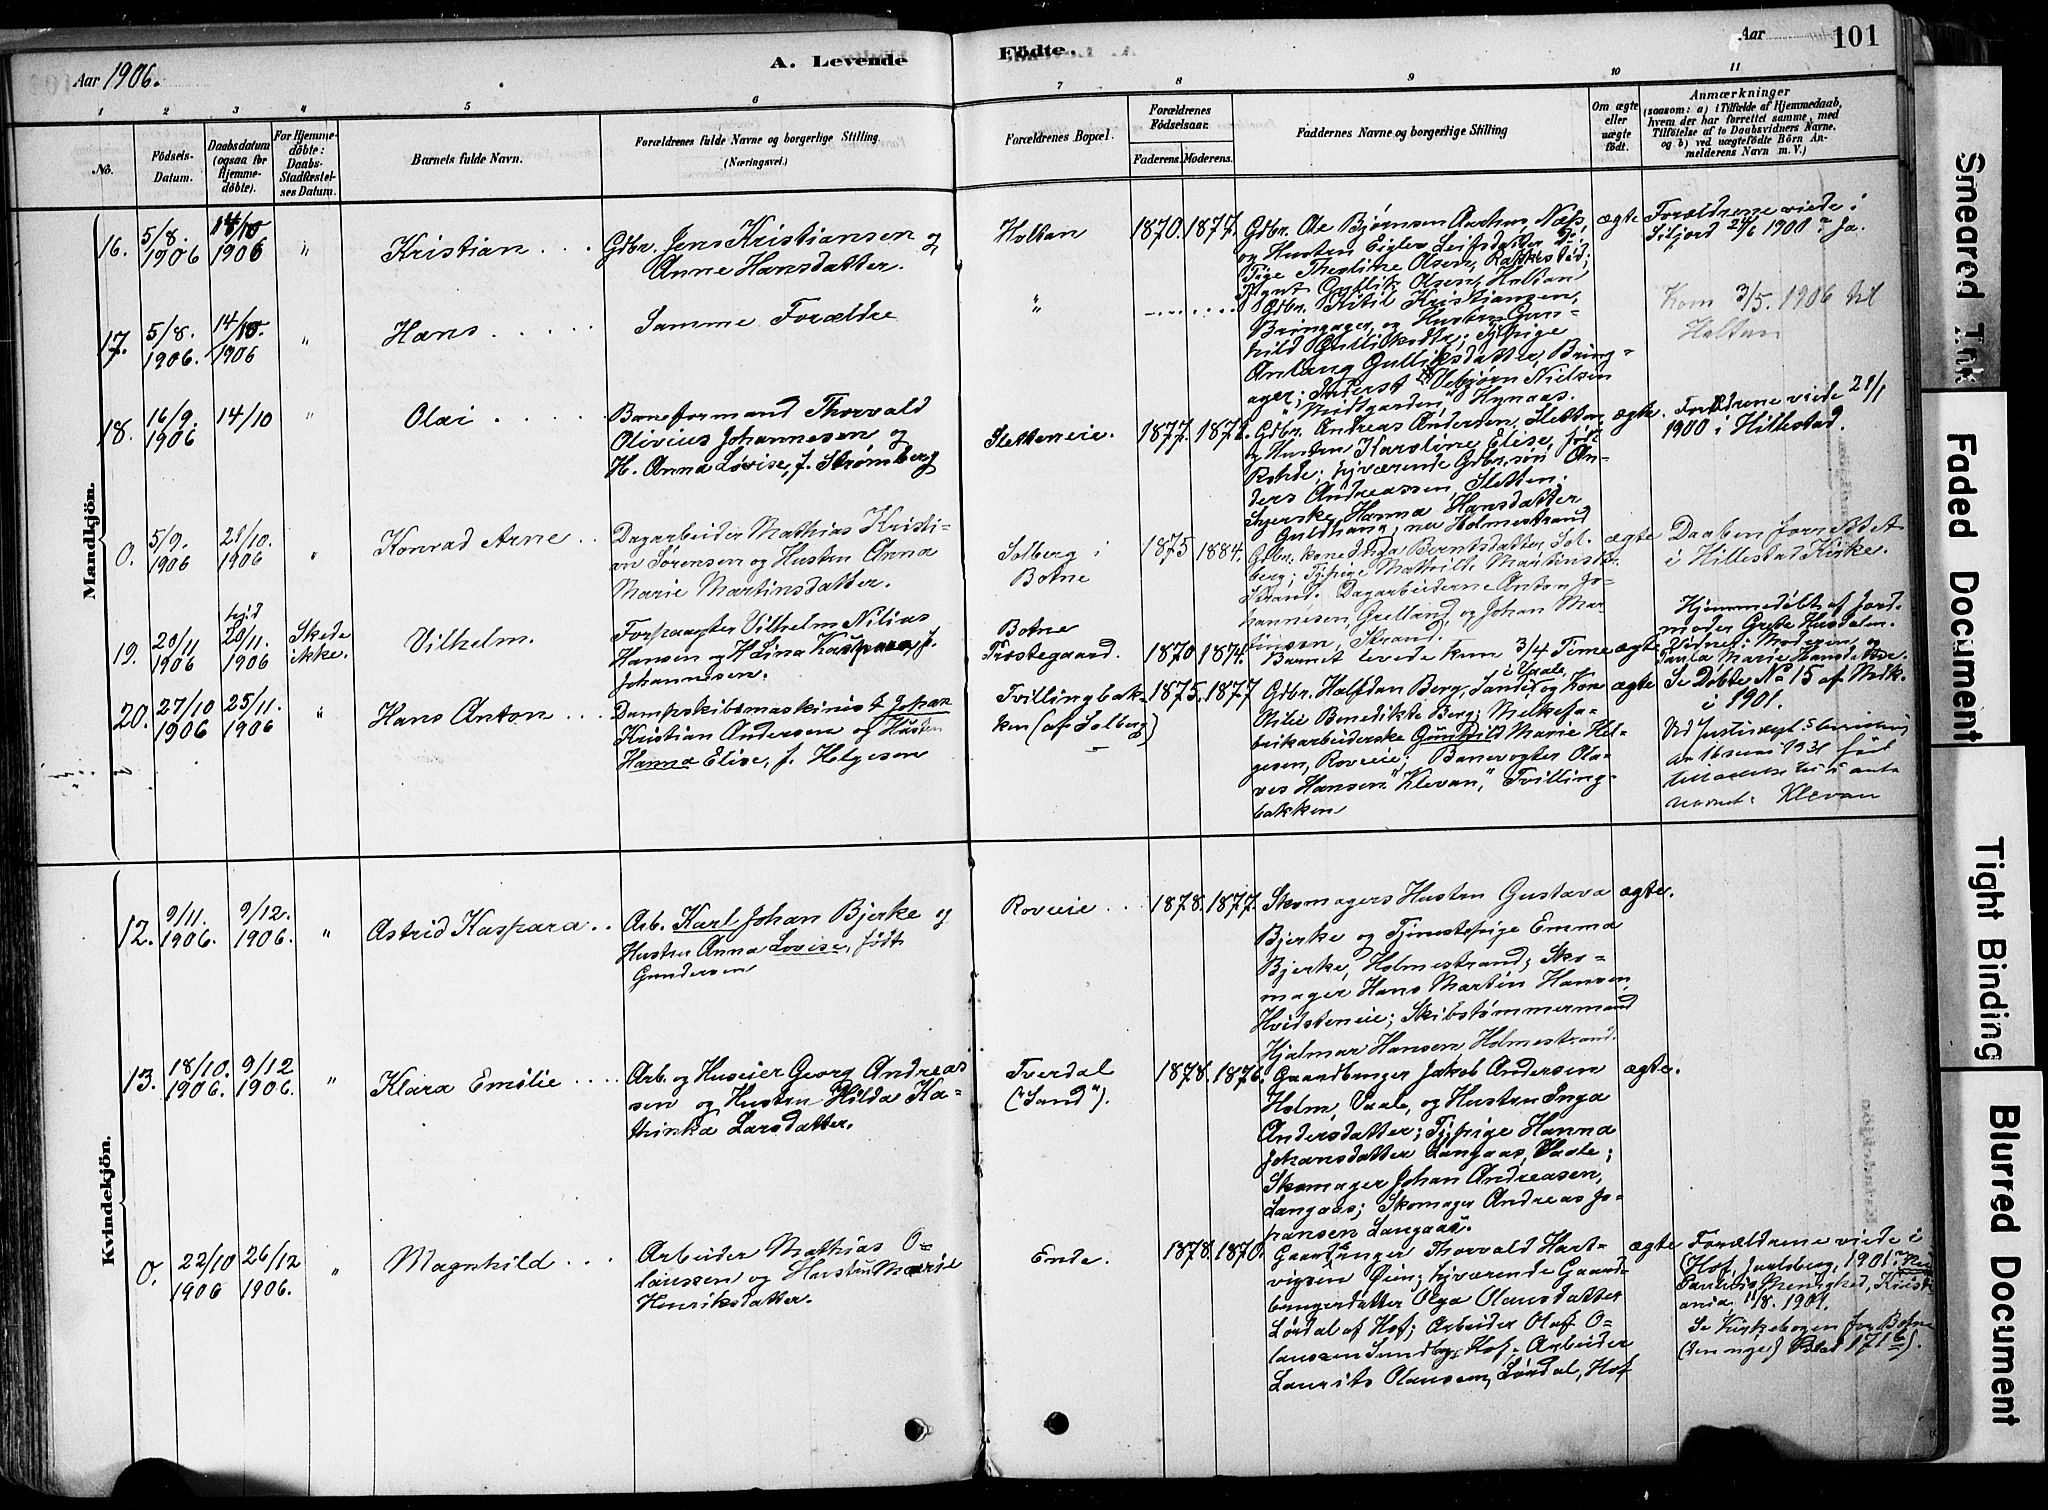 Aar 1906.
A. Levende
Födte.
Aar
101
1 2 3 4 5 6 7 8 9 10 11
No.
Födsels-Datum.
Daabsdatum (ogsaa for Hjemmedöbte).
For Hjemmedöbte: Daabs-Stadfæstelses Datum.
Barnets fulde Navn.
Forældrenes fulde Navne og borgerlige Stilling
(Næringsvei.)
Forældrenes Bopæl.
Forældrenes Födselsaar.
Faderens. Moderens.
Faddernes Navne og borgerlige Stilling
Om ægte eller uægte födt.
Anmærkninger
(saasom: a) i Tilfælde af Hjemmedaab,
hvem der har forrettet samme, med
Tilföielse af to Daabsvidners Navne.
og b) ved uægtefödte Börn An-
melderens Navn m. V.)
Mandkjön.
16. 5/8. 1906 14/10 1906 " Kristian . . . . Gdbr. Jens Kristiansen og
Anne Hansdatter.
Holtan 1870. 1877.
Gdbr. Ole Bjørnsen Aarhus, Næs,
og Husten Eiglev Leifsdatter
Pige Theoline Olsen, Rakkestad;
Ungt. Gullik Olsen, Holtan
ægte
Forældrene viede i
Siljord 24/6 1900? Ja.
17. 5/8. 1906. 14/10. 1906 " Hans . . . . . Samme Forældre
"
Gdbr. Kitil Kristiansen,
Bringager, og Hustru Gun-
hild Gulliksdtr; Tj.pige
Anlaug Gulliksdatter, Bring-
ager; Inderst Vebjørn Nielsen
"Midtgarden" Hynaas.
Kom 3/5. 1906 til
Holtan
18. 16/9. 1906 14/10 " Olai . . . . . Baneformand Thorvald
Olivius Johannesen og
H. Anna Lovise, f. Strømberg
Sletteneie. 1877. 1871.
Gdbr. Andreas Andersen, Sletten,
og Husten Karoline Elise, født
Rohde; hjværende Gdbr.søn An-
ders Andreassen, Sletten.
Syerske Hanna Hansdatter
Guldhaug, nu Holmestrand
ægte.
Forældrene viede 21/1
1900 i Hillestad.
0. 5/9. 1906 21/10. 1906 " Konrad Arne . . Dagarbeider Mathias Kristi-
an Sørensen og Husten Anna
Marie Martinsdatter.
Solberg i
Botne
1875 1884.
Gdbr. kone Inga Berntsdatter, Sol-
berg; Tj.pige Mathilde Martinsdtr.
Strand; Dagarbeiderne Anton Jo-
hannesen, Grelland, og Johan Mar-
tinsen, Strand.
ægte
Daaben forrettet
i Hillestad Kirke.
19. 20/11 1906 20/11. 1906 Skede
ikke. Vilhelm. Forpagter Vilhelm Nilias
Hansen og H. Lina Kaspara, f.
Johannesen.
Botne
Præstegaard. 1870 1874.
Barnet levede kun 3/4 Time
ægte
Hjemmedøbt af Jord-
moder Grete Husdalm.
Vidner: Moderen og
Paula Marie Hansdatter.
20. 27/10 1906 25/11. 1906 " Hans Anton . . . Dampskibsmaskinist Johan
Kristian Andersen og Husten
Hanna Elise, f. Helgesen
Tvillingbak-
ken (af Solberg)
1875. 1877
Gdbr. Halfdan Berg, Sande og Kone
Oline Benedikte Berg; Melkefa-
brikarbeiderske Gunhild Marie Hel-
gesen, Roveie; Banevogter Ola-
ves Hansen "Klevan," Tvilling-
bakken
ægte
Se Døbte No 15 af Mdk.
i 1901.
navnet: Klevan
Kvindekjön.
12. 9/11. 1906. 9/12. 1906. " Astrid Kaspara . . Arb. Karl Johan Bjerke og
Hustru Anna Lovise, født
Gundersen
Roveie . . . 1878. 1877.
Skomagers Husten Gustava
Bjerke og Tjenestepige Emma
Bjerke, Holmestrand; Sko-
mager Hans Martin Hansen,
Hvidsteneie; Skibstømmermand
Hjalmar Hansen Holmestrand.
ægte.
13. 18/10. 1906. 9/12 1906. " Klara Emilie . . . . Arb. og Huseier Georg Andreas
sen og Husten Hilda Ka-
thinka Larsdatter.
Tverdal
("Sand").
1878. 1876.
Gaardbruger Jakob Andersen
Holm, Vaale, og Husten Inga
Andersdatter; Tj.pige Hanna
Johansdatter Langaas, Vaale;
Skomager Johan Andreasen,
Langaas; Skomager Andreas Jo-
hansen Langaas.
ægte.
0. 22/10 1906 26/12 1906. " Magnhild . . . Arbeider Mathias O-
laussen og Husten Marie
Henriksdatter.
Ende. 1878. 1870.
Gaardbruger Thorvald Hart-
vigsen Øien; hjværende Gaard-
brugerdatter Olga Olausdatter
Lørdal af Hof; Arbeider Olaf O-
laussen Sundby, Hof. Arbeider
Laurits Olaussen, Lørdal, Hof
ægte
Forældrene viede i
(Hof, Jarlsberg, 1901? Nei
Paulus Menighed, Kristi-
ania, 11/8. 1901.
Se Kirkebogen for Botne
(den nye) Blad 171 b).
Smeared Ink
Faded Document
Tight Binding
Blurred Document